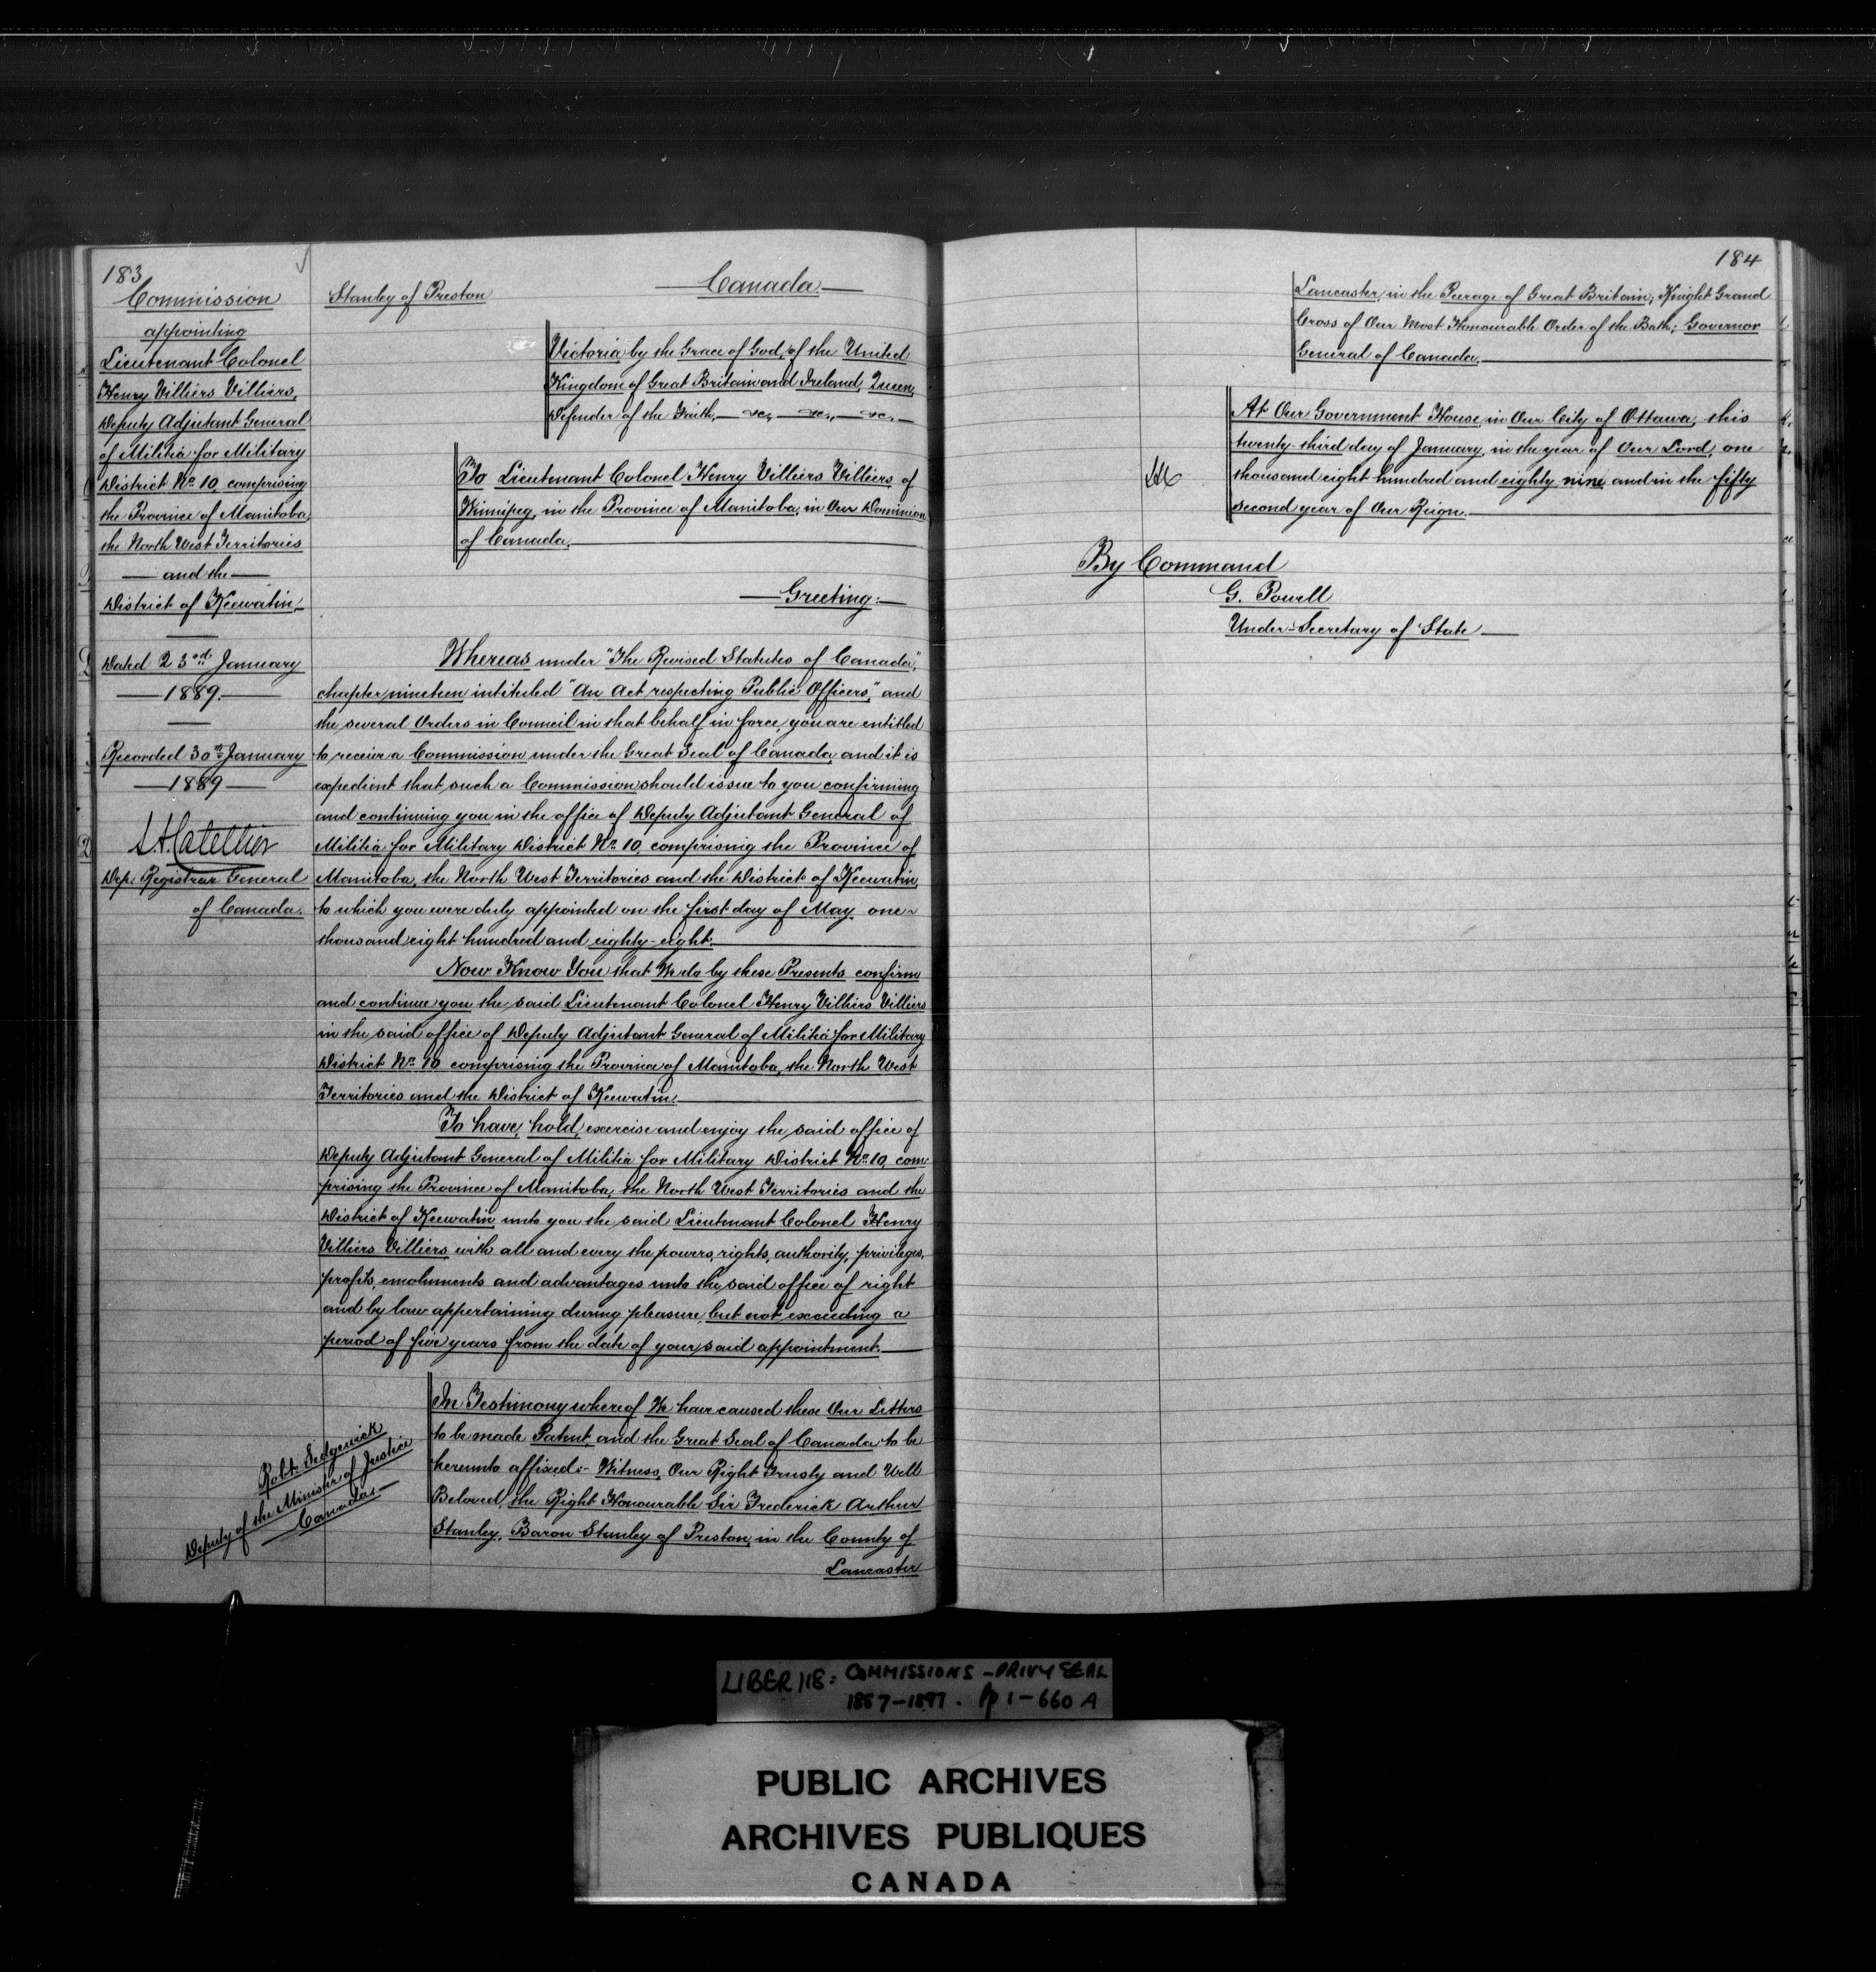 183
Commission
appointing
Lieutenant Colonel
Henry Villiers Villiers,
Deputy Adjutant General
of Militia for Military
District No. 10, comprising
the Province of Manitoba,
the North West Territories
— and the —
District of Keewatin.
Dated 23rd January
— 1889. —
Recorded 30th January
— 1889 —
Dep. Registrar General
of Canada.
Stanley of Preston
— Canada —
Victoria by the Grace of God, of the United
Kingdom of Great Britain and Ireland, Queen,
Defender of the Faith, — &c., — &c., — &c. —
To Lieutenant Colonel Henry Villiers Villiers, of
Winnipeg, in the Province of Manitoba, in Our Dominion
of Canada,
— Greeting: —
Whereas under "The Revised Statutes of Canada",
chapter nineteen intituled "An Act respecting Public Officers," and
the several Orders in Council in that behalf in force, you are entitled
to receive a Commission under the Great Seal of Canada, and it is
expedient that such a Commission should issue to you confirming
and continuing you in the office of Deputy Adjutant General of
Militia for Military District No. 10, comprising the Province of
Manitoba, the North West Territories and the District of Keewatin,
to which you were duly appointed on the first day of May, one-
thousand eight hundred and eighty-eight.
Now Know You that We do by these Presents confirm
and continue you the said Lieutenant Colonel Henry Villiers Villiers
in the said office of Deputy Adjutant General of Militia for Military
District No. 10 comprising the Province of Manitoba, the North West
Territories and the District of Keewatin.
To have, hold, exercise and enjoy the said office of
Deputy Adjutant General of Militia for Military District No. 10, com-
prising the Province of Manitoba, the North West Territories and the
District of Keewatin unto you the said Lieutenant Colonel Henry
Villiers Villiers, with all and every the powers, rights, authority, privileges,
profits, emoluments and advantages unto the said office of right
and by law appertaining during pleasure, but not exceeding a
period of five years from the date of your said appointment.
In Testimony whereof We have caused these Our Letters
to be made Patent, and the Great Seal of Canada to be
hereunto affixed:- Witness, Our Right Trusty and Well
Beloved, the Right Honourable Sir Frederick Arthur
Stanley, Baron Stanley of Preston, in the County of
Lancaster
Robt. Sedgewick
Deputy of the Minister of Justice
Canada.
184
Lancaster, in the Peerage of Great Britain; Knight Grand
Cross of Our Most Honourable Order of the Bath; Governor
General of Canada.
At Our Government House, in Our City of Ottawa, this
twenty-third day of January, in the year of Our Lord, one
thousand eight hundred and eighty nine and in the fifty
second year of Our Reign.
By Command
G. Powell
Under-Secretary of State
LIBER 118: COMMISSIONS - PRIVY SEAL
1887-1897. pp 1-660 A
PUBLIC ARCHIVES
ARCHIVES PUBLIQUES
CANADA